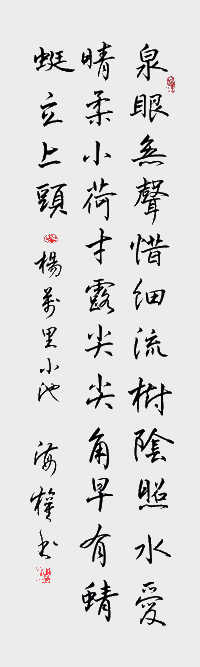 泉眼無聲惜細流樹陰照水愛
晴柔小荷才露尖尖角早有蜻
蜓立上頭 楊萬里小池 海權书